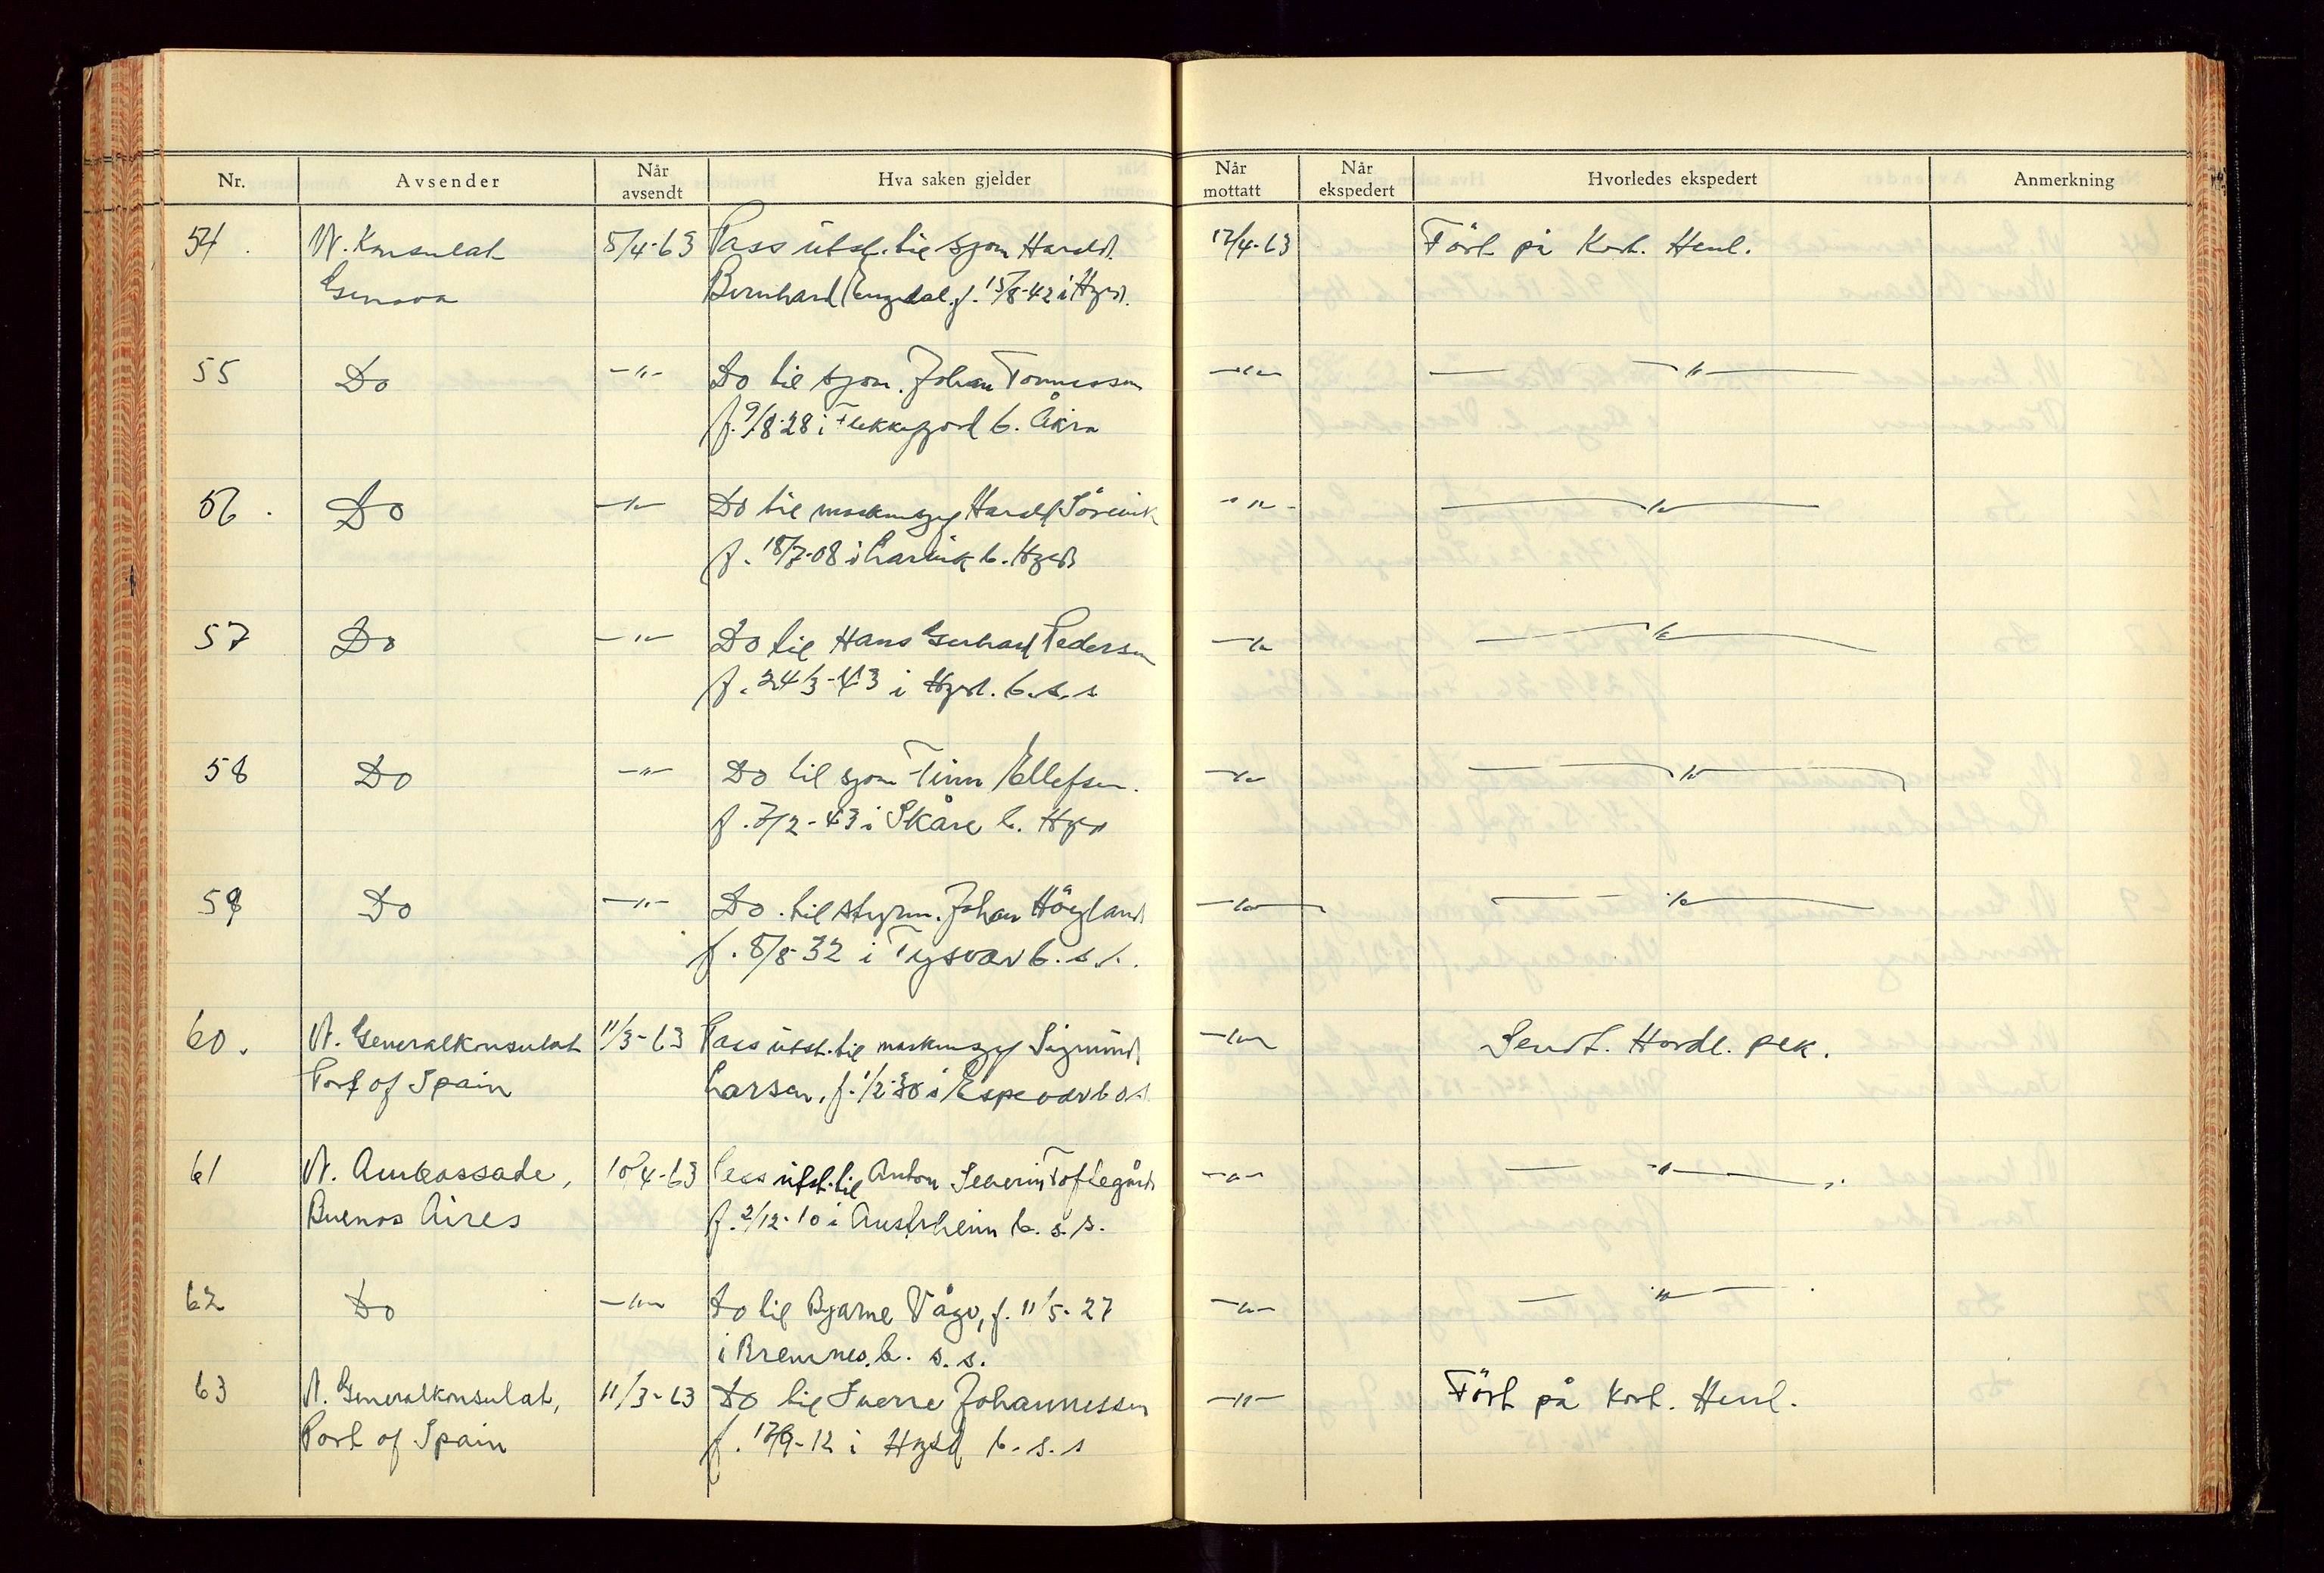 Nr. Avsender Når avsendt Hva saken gjelder Når mottatt Når ekspedert Hvorledes ekspedert Anmerkning
54. N. Konsulat 5/4-63 Pass utst. til sjøm Harald 17/4-63 Fört på Kort. Henl.
Genova Bernhard Engedal, f. 15/8-42 i Hgsd.
55 Do -"- Do til sjøm. Johan Tønnessen -"- -"-
f. 9/8-28 i Flekkefjord b. Åkra
56. Do -"- Do til maskinsjef Harald Sörvik -"- -"-
f. 18/7-08 i Larvik b. Hgsd
57 Do -"- Do til Hans Gerhard Pedersen -"- -"-
f. 24/3-43 i Hgsd. b. s. s
58 Do -"- Do til sjøm Finn Ellefsen. -"- -"-
f. 7/2-43 i Skåre b. Hgsd
59 Do -"- Do. til styrm. Johan Höyland -"- -"-
f. 8/8-32 i Tysvær b. s. s.
60. N. Generalkonsulat 11/3-63 Pass utst. til maskinsjef Sigmund -"- Sendt. Hordl. pkk.
Port of Spain Larsen, f. 1/2-30 i Espevær b o s.
61 N. Ambassade, 10/4-63 Pass utst. til Anton Severin Toftegård -"- -"-
Buenos Aires f. 2/12-10 i Austrheim b. s. s.
62 Do -"- Do til Bjarne Våge, f. 11/5-27 -"- -"-
i Bremnes. b. s. s.
63 N. Generalkonsulat, 11/3-63 Do til Sverre Johannessen -"- Fört på Kort. Henl.
Port of Spain f. 17/9-12 i Hgsd b. s. s